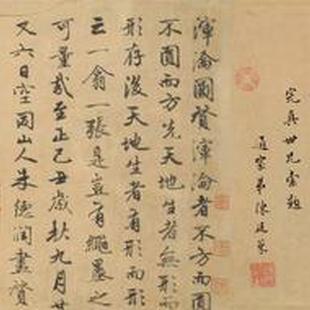 世兄索題
家弟陳
渾淪圖贊渾淪者不方而圓
不圓而方先天地生者無形而
形存後天地生者有形而形
亡一翕一張是豈有繩墨之
可量哉至正己丑歲秋九月廿
又六日空同山人朱德潤畫贊